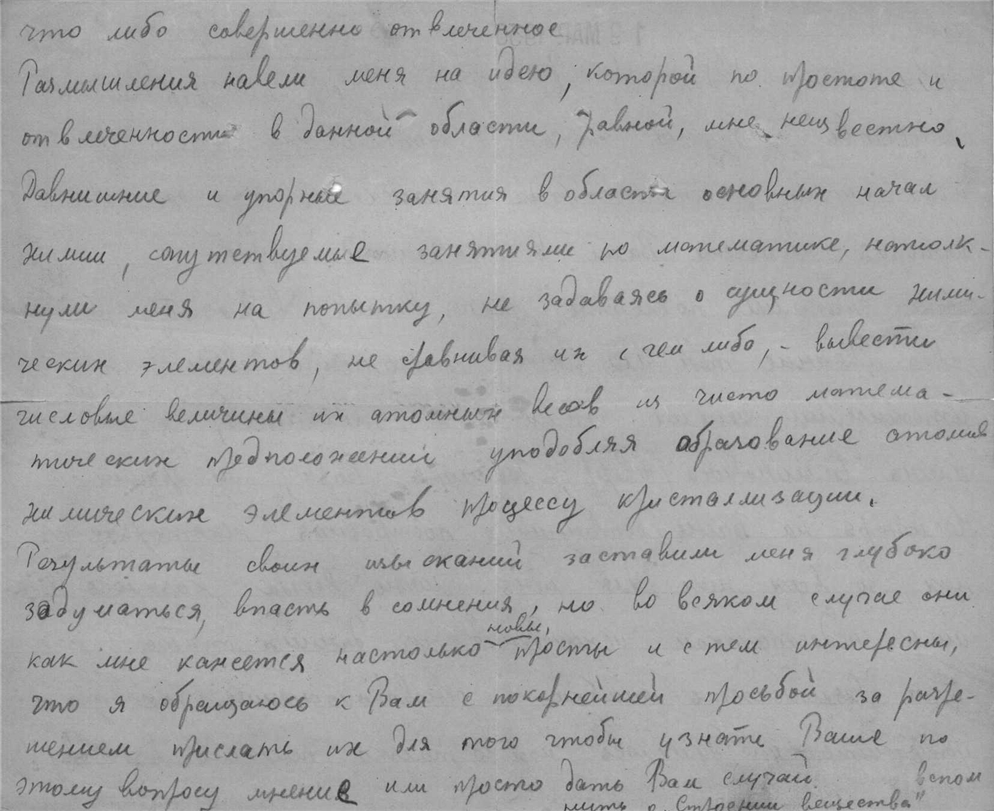 что либо совершенно отвлеченное
Размышления навели меня на идею, которой по простоте и
отвлеченности в данной области, равной, мне неизвестно,
Давнишние и упорные занятия в области основных начал
химии, сопутствуемые занятиями по математике, натолк-
нули меня на попытку, не задаваясь о сущности хими-
ческих элементов, не сравнивая их с чем либо, - вывести
числовые величины их атомных весов из чисто матема-
тических предположений уподобляя образование атомов
химических элементов процессу кристаллизации.
Результаты своих изысканий заставили меня глубоко
задуматься, впасть в сомнения, но во всяком случае они
новы,
как мне кажется настолько просты и с тем интересны,
что я обращаюсь к Вам с покорнейшей просьбой за разре-
шением прислать их для того чтобы узнать Ваше по
этому вопросу мнение или просто дать Вам случай вспом
нить о "Строении вещества"